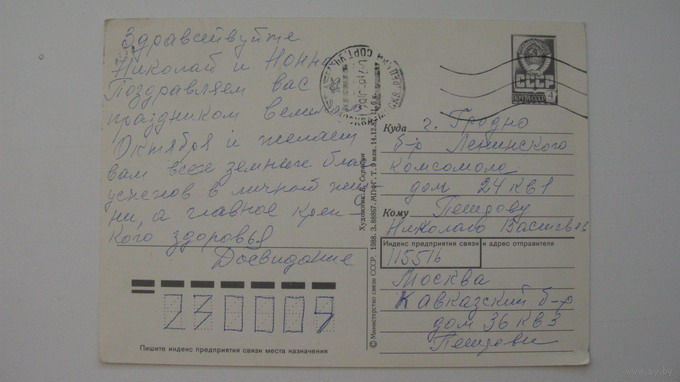 Здравствуйте
Николай и Нонна
Поздравляем вас
праздником Велик
Октября и желаем
вам всех земных благ
успехов в личной жиз-
ни, а главное креп-
кого здоровья
Досвидание
СССР
4
Куда г. Гродно
б-р Ленинского
комсомола
дом 24 кв 1
Кому Петрову
Николаю
Индекс предприятия связи и адрес отправителя
115516
Москва
Кавказский б-р
дом 36 кв 3
Петровы
230009
Пишите индекс предприятия связи места назначения
© Министерство связи СССР. 1988.
Художник